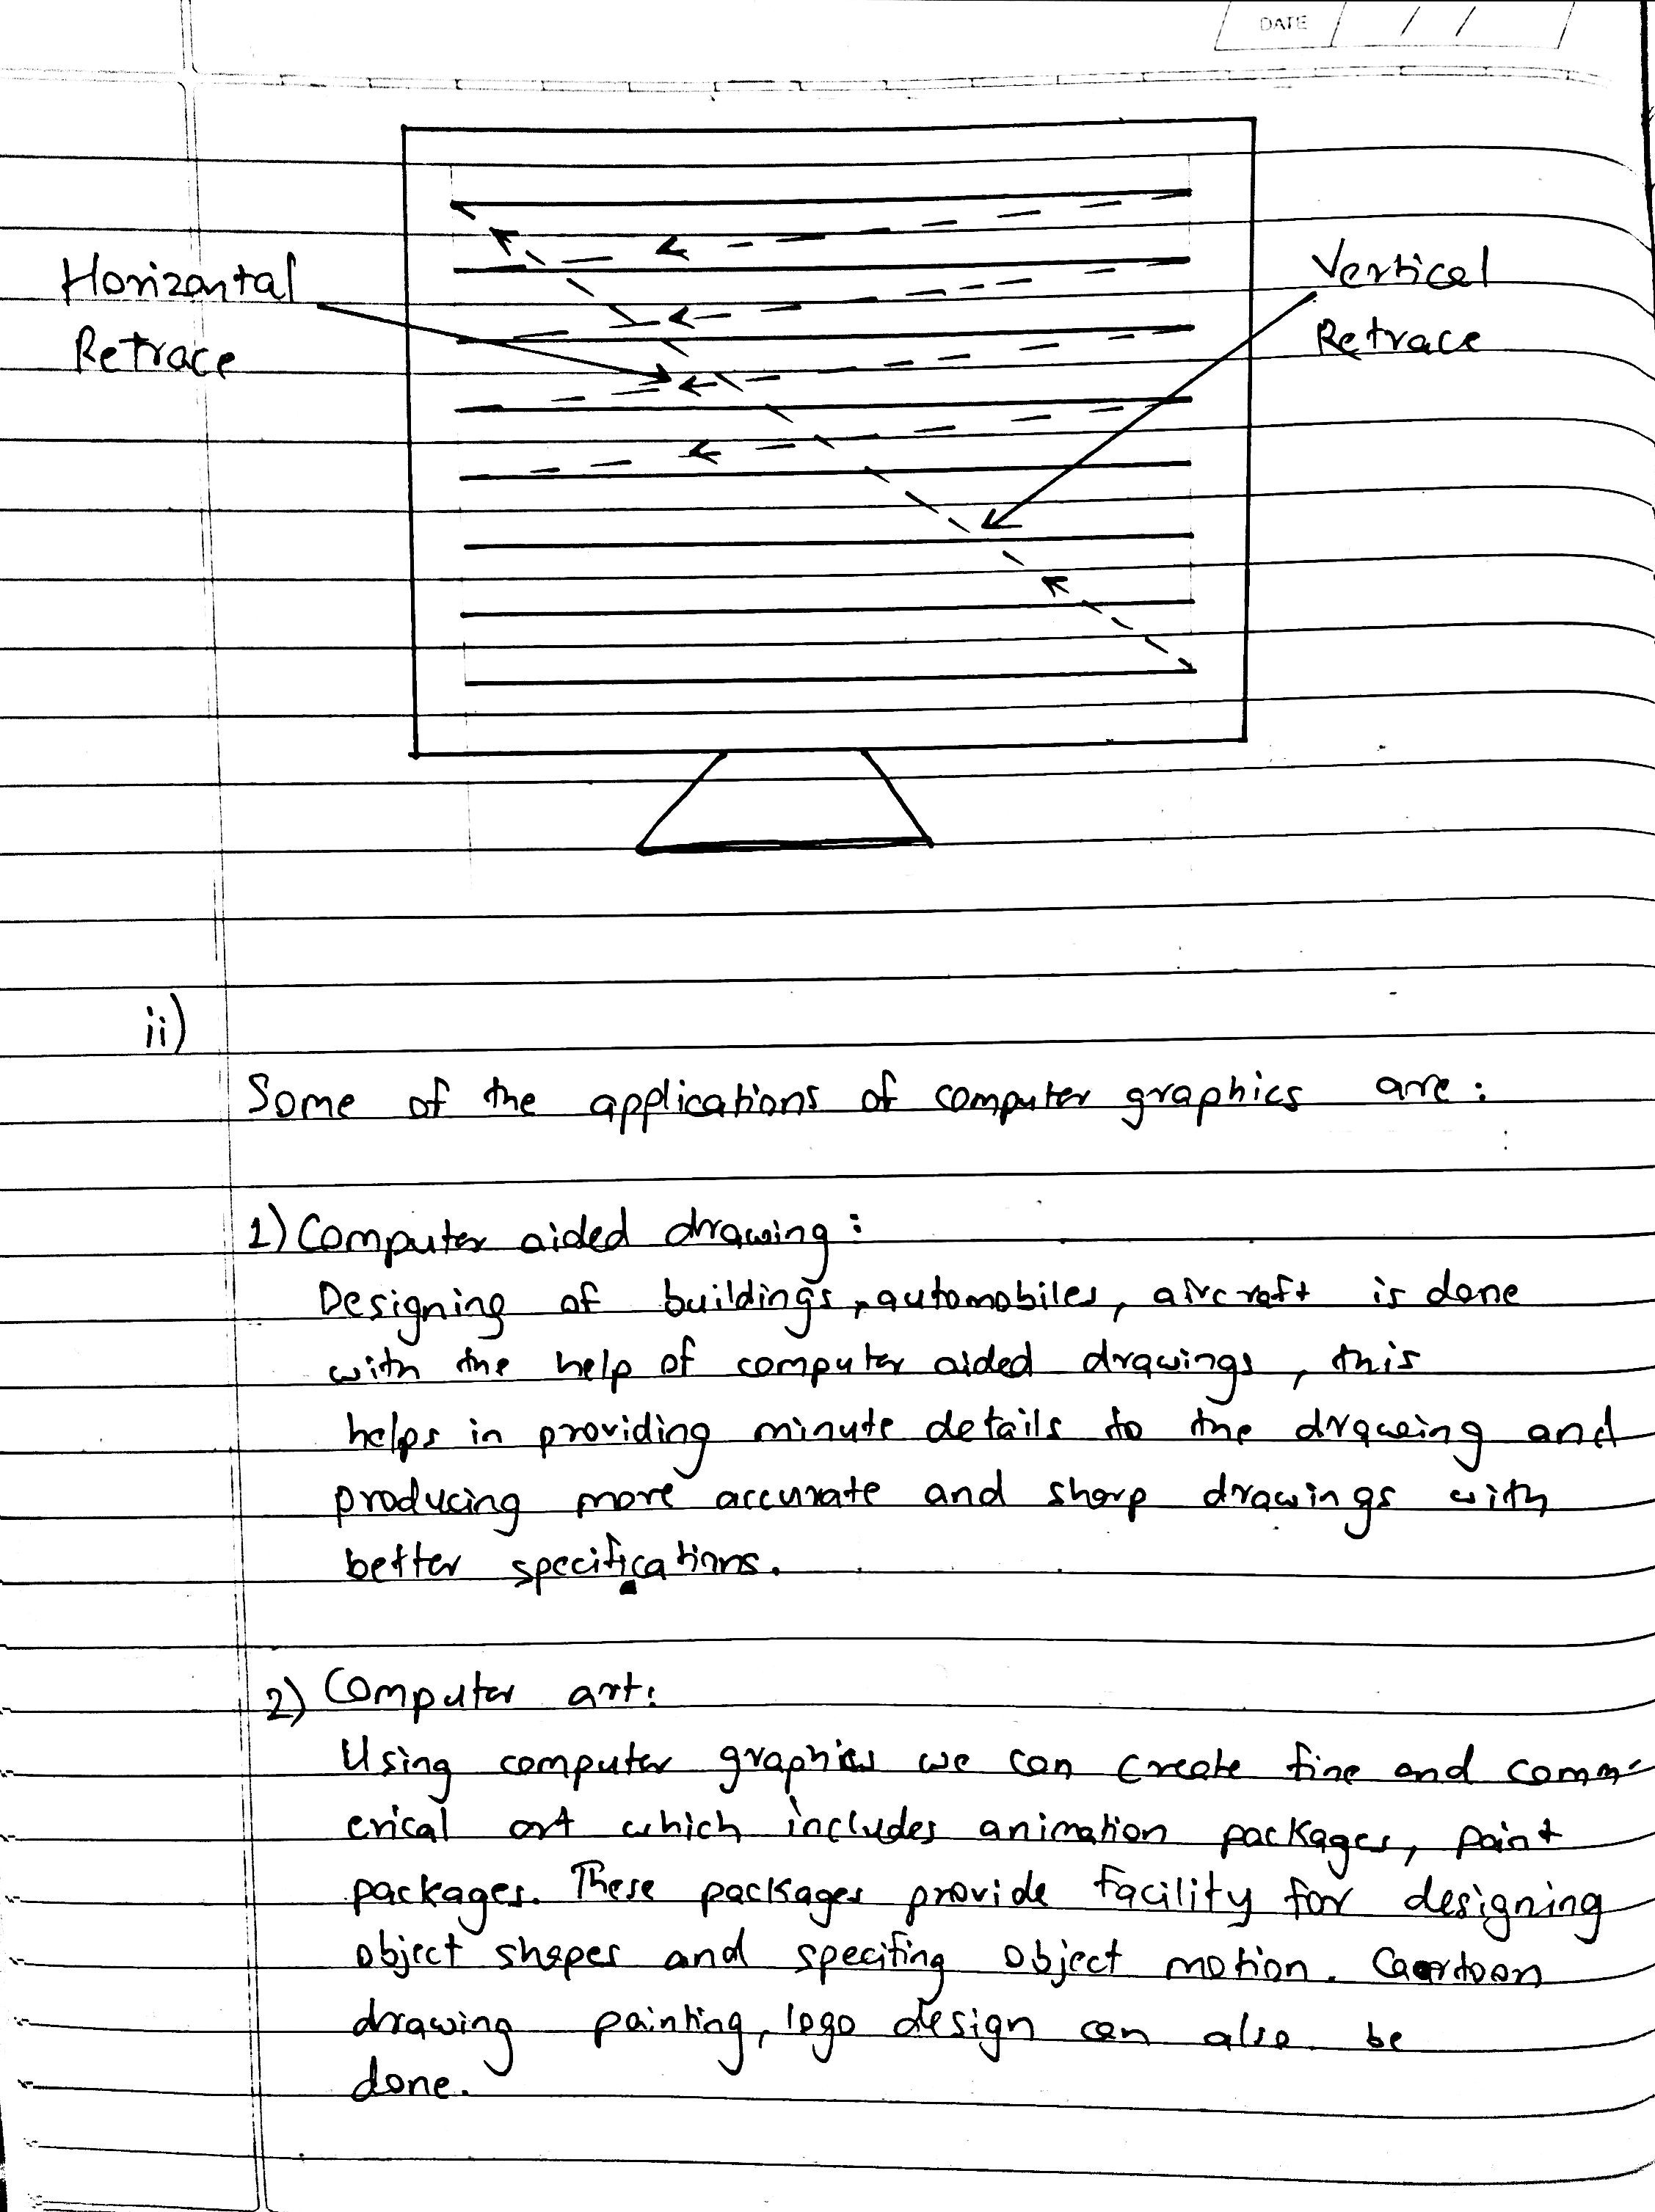 DATE / /
Horizontal
Retrace
Vertical
Retrace
ii)
Some of the applications of computer graphics are:
1) Computer aided drawing:
Designing of buildings, automobiles, aircraft is done
with the help of computer aided drawings, this
helps in providing minute details to the drawing and
producing more accurate and sharp drawings with
better specifications.
2) Computer art:
Using computer graphics we can create fine and comm-
erical art which includes animation packages, paint
packages. These packages provide facility for designing
object shapes and specifing object motion. Cartoon
drawing painting, logo design can also be
done.